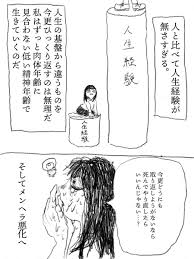 人と比べて人生経験が
無さすぎる。
人生経験
人生経験
人生の基盤から違うものを
今更ひっくり返すのは無理だ
私はずっと肉体年齢に
見合わない低い精神年齢で
生きていくのだ
今更どうにも
取り返しようがないなら
死んでやり直したら
いいんじゃない…!?
そしてメンヘラ悪化へ